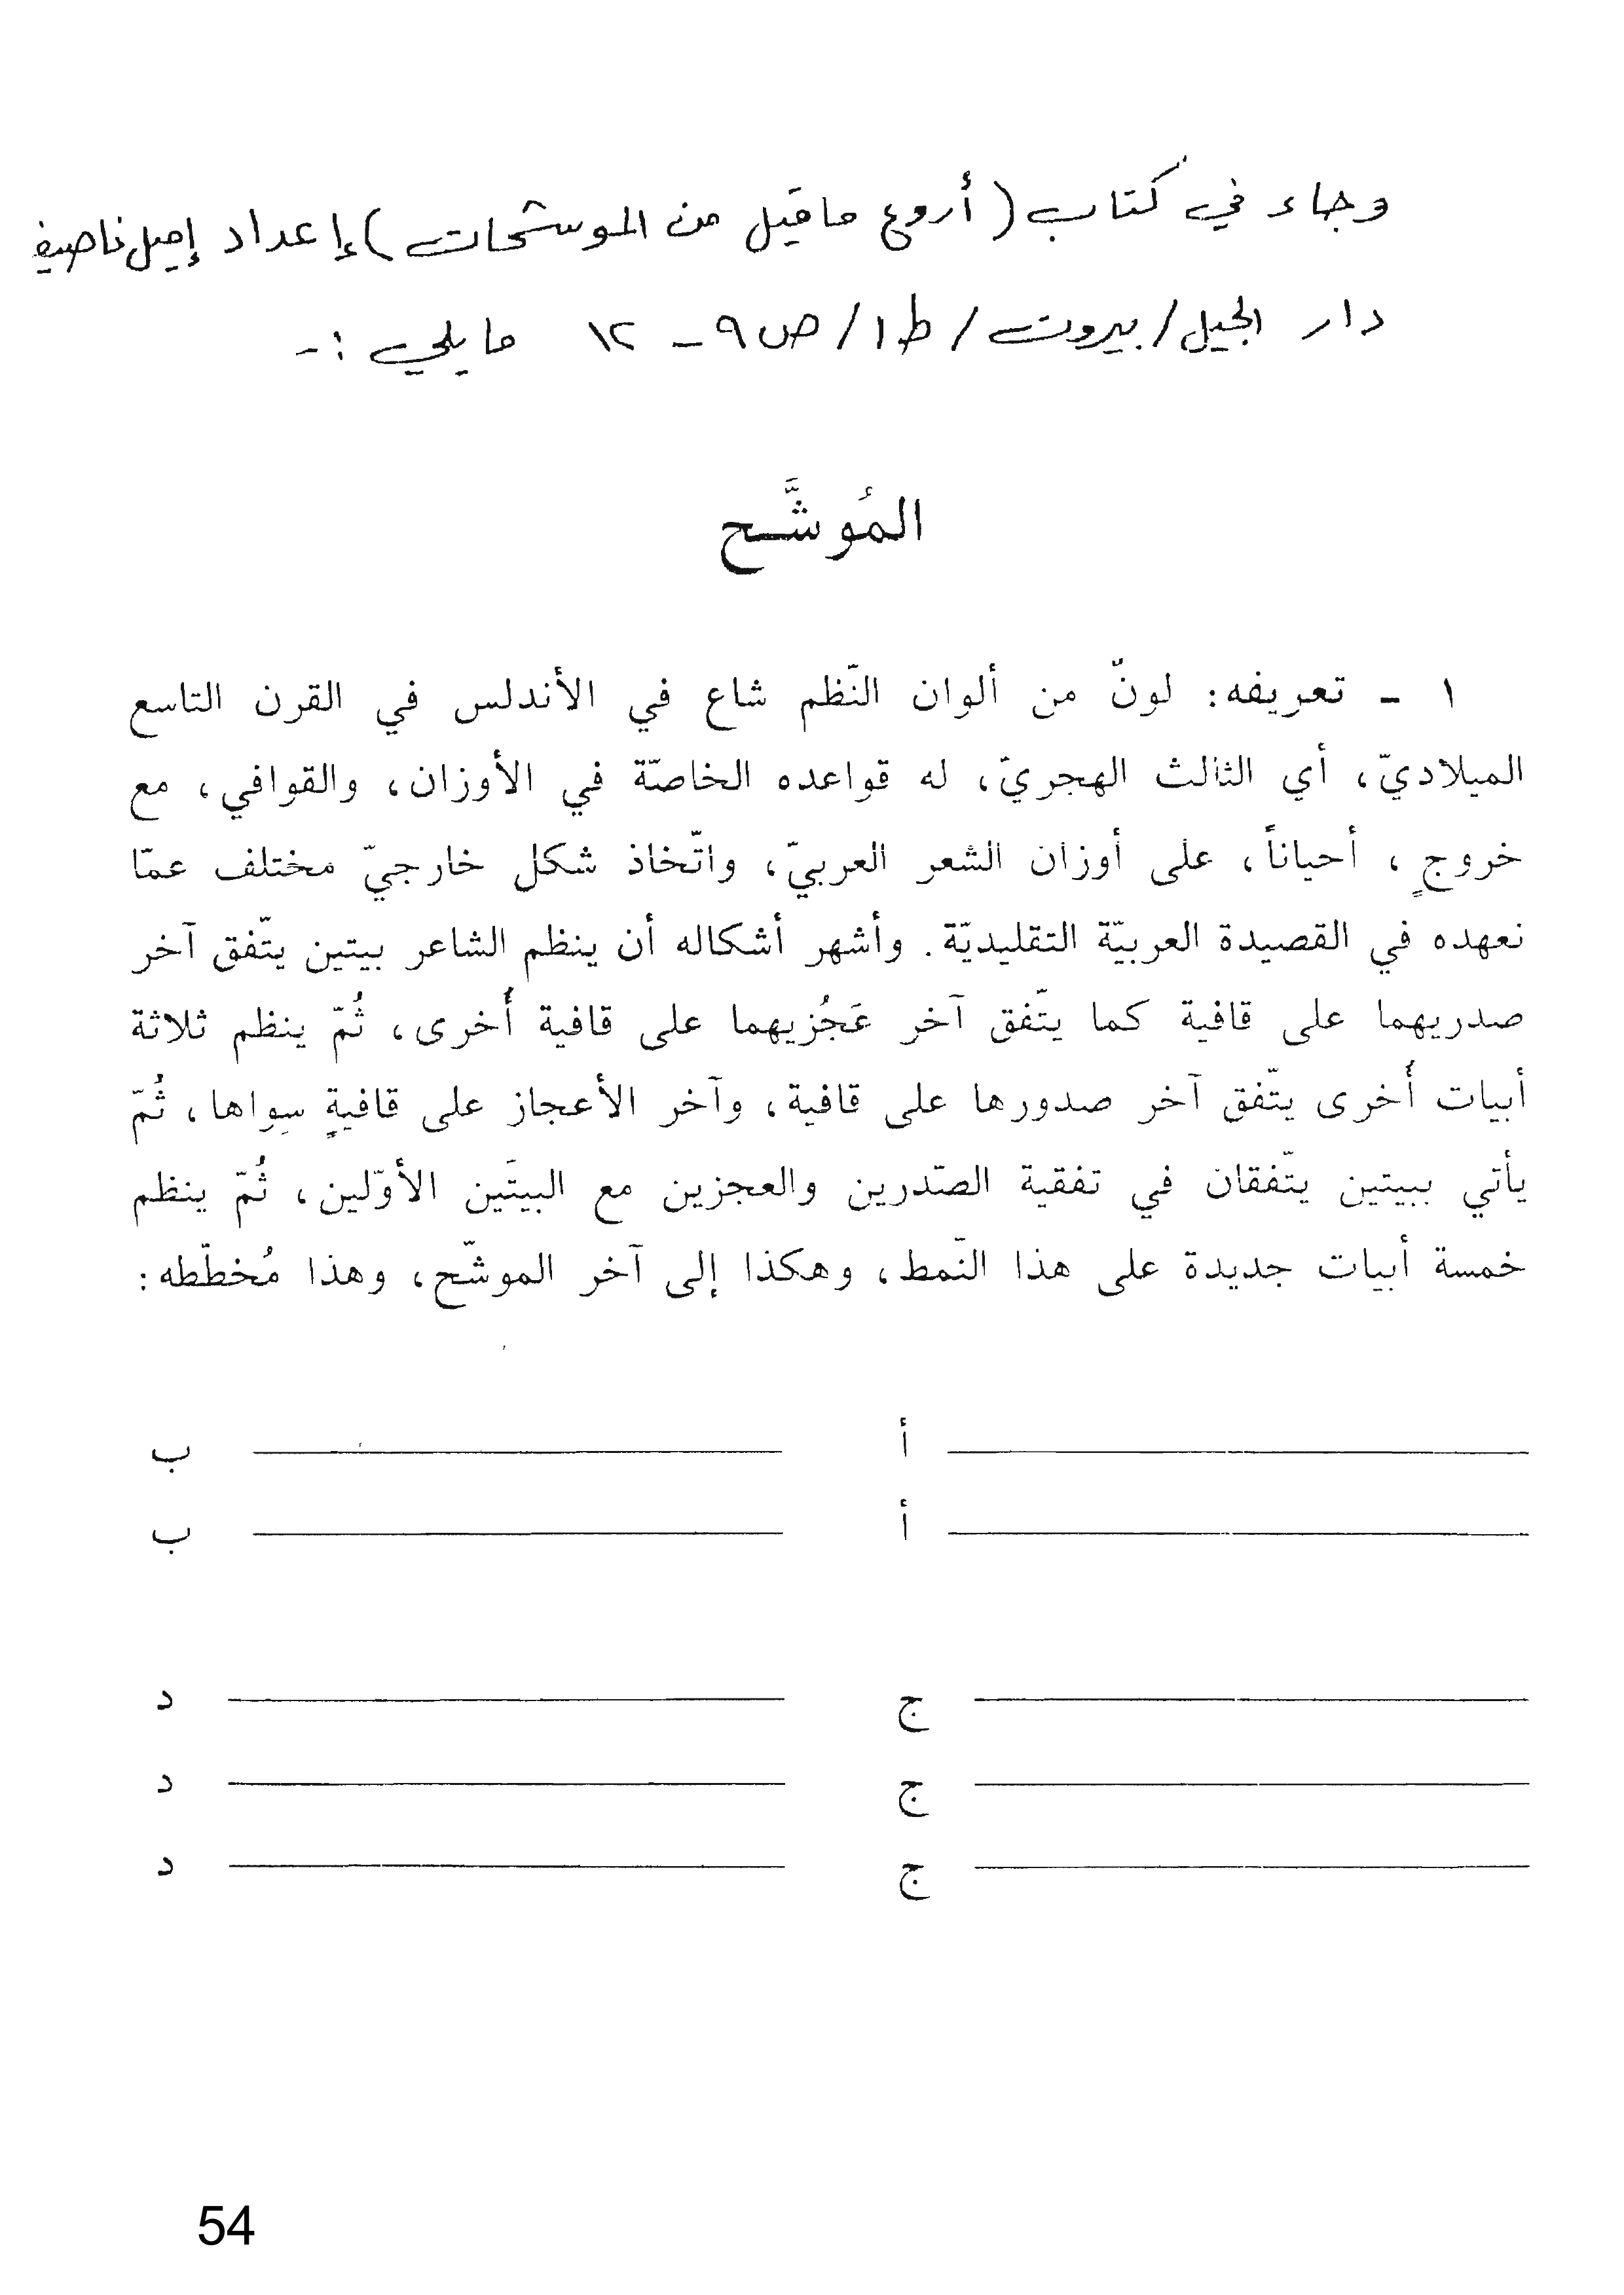 وجاء في كتاب (أروع ما قيل من الموشحات) إعداد إميل ناصيف
دار الجيل / بيروت / ط ١ / ص ٩ - ١٢ ما يلي :-
المُوشَّح
١ - تعريفه: لونٌ من ألوان النّظم شاع في الأندلس في القرن التاسع
الميلاديّ، أي الثالث الهجريّ، له قواعده الخاصّة في الأوزان، والقوافي، مع
خروجٍ، أحياناً، على أوزان الشعر العربيّ، واتّخاذ شكل خارجيّ مختلف عمّا
نعهده في القصيدة العربيّة التقليديّة. وأشهر أشكاله أن ينظم الشاعر بيتين يتّفق آخر
صدريهما على قافية كما يتّفق آخر عَجُزيهما على قافية أُخرى، ثُمّ ينظم ثلاثة
أبيات أُخرى يتّفق آخر صدورها على قافية، وآخر الأعجاز على قافيةٍ سِواها، ثُمّ
يأتي ببيتين يتّفقان في تقفية الصّدرين والعجزين مع البيتَين الأوّلين، ثُمّ ينظم
خمسة أبيات جديدة على هذا النّمط، وهكذا إلى آخر الموشّح، وهذا مُخطّطه:
أ ب
أ ب
ج د
ج د
ج د
54